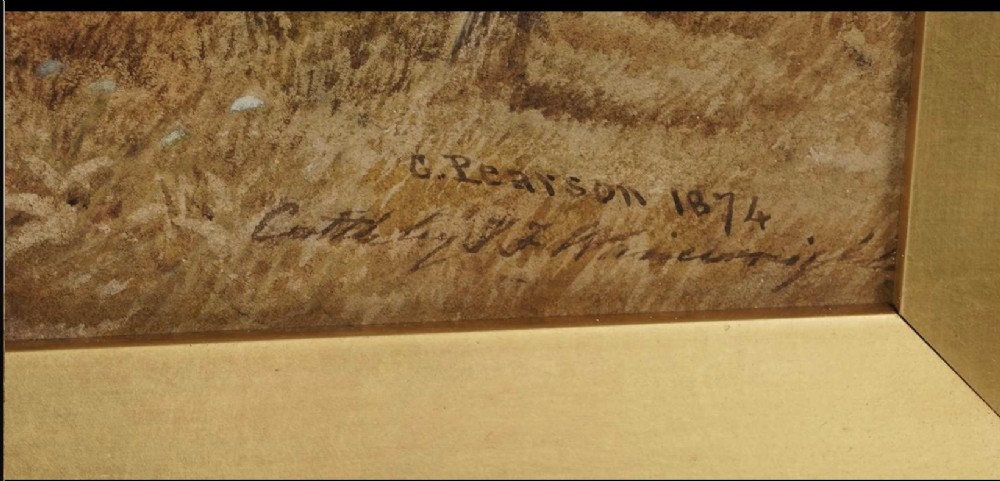 C. Pearson 1874
Cattle by T F Wainewright